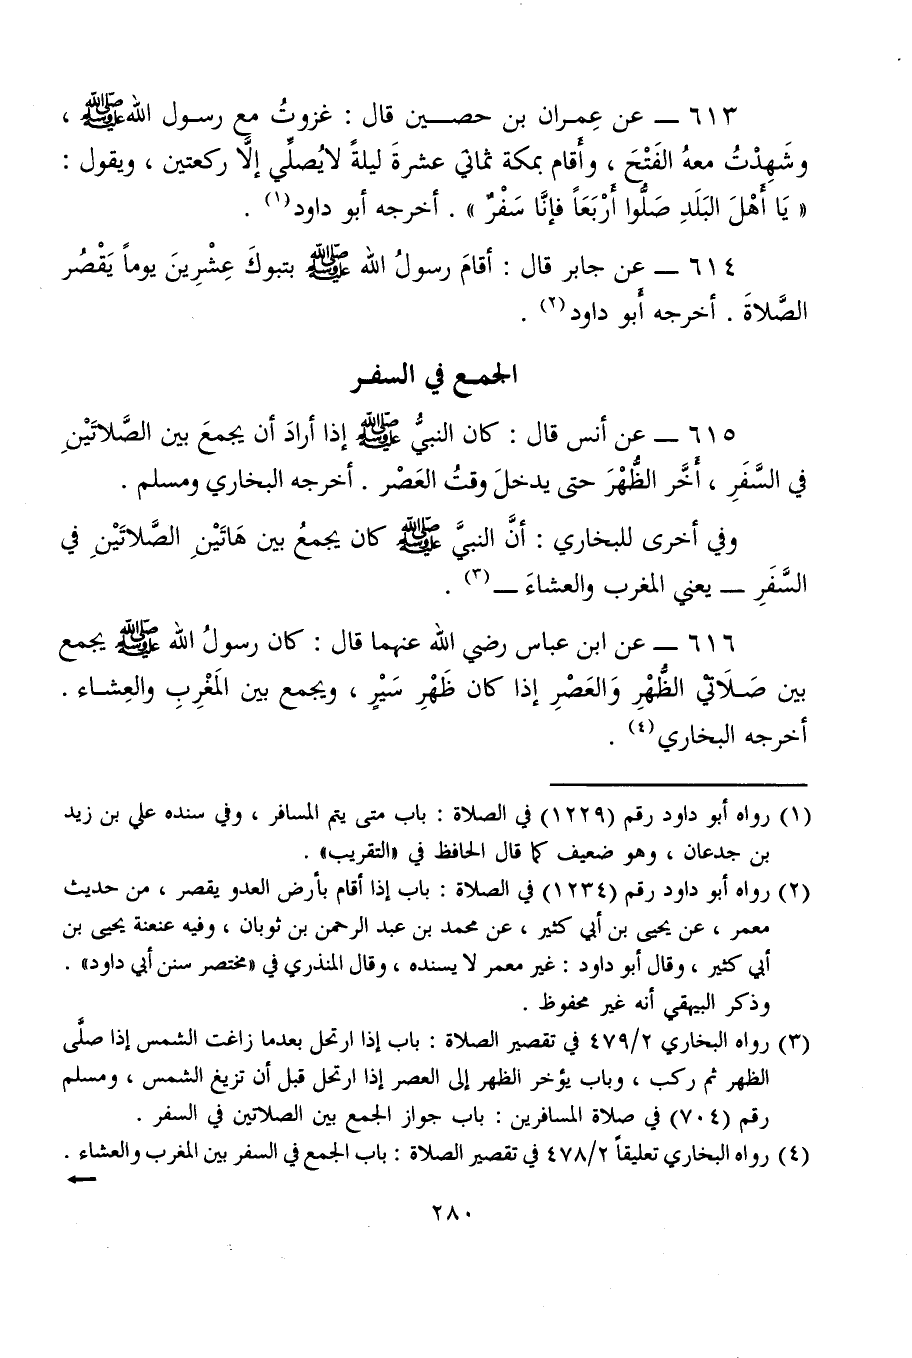 ٦١٣ ــ عن عِمـران بن حصـــين قال : غزوتُ مع رسـول الله ﷺ ،
وشَهِدْتُ معهُ الفَتْحَ ، وأَقام بمكة ثمانيَ عشرةَ ليلةً لايُصلِّي إلَّا ركعتين ، ويقول :
« يَا أَهْلَ البَلَدِ صَلُّوا أَرْبَعَاً فإنَّا سَفْرٌ » . أخرجه أبو داود(١) .
٦١٤ ــ عن جابر قال : أقامَ رسولُ الله ﷺ بتبوكَ عِشْرِينَ يوماً يَقْصُر
الصَّلاةَ . أخرجه أَبو داود(٢) .
الجمـع في السفـر
٦١٥ ــ عن أنس قال : كان النبيُّ ﷺ إذا أرادَ أن يجمعَ بين الصَّلاتَيْنِ
في السَّفَرِ ، أَخَّر الظُّهْرَ حتى يدخلَ وقتُ العَصْر . أخرجه البخاري ومسلم .
وفي أخرى للبخاري : أنَّ النبيَّ ﷺ كان يجمعُ بين هَاتَيْنِ الصَّلاتَيْنِ في
السَّفَرِ ــ يعني المغرب والعشاءَ ــ(٣) .
٦١٦ ــ عن ابن عباس رضي الله عنهما قال : كان رسولُ الله ﷺ يجمع
بين صَـلَاتَيْ الظُّهْرِ وَالعَصْرِ إذا كان ظَهْرِ سَيْرٍ ، ويجمع بين المَغْرِبِ والعِشـاء .
أخرجه البخاري(٤) .
(١) رواه أبو داود رقم (١٢٢٩) في الصلاة : باب متى يتم المسافر ، وفي سنده علي بن زيد
بن جدعان ، وهو ضعيف كما قال الحافظ في «التقريب» .
(٢) رواه أبو داود رقم (١٢٣٤) في الصلاة : باب إذا أقام بأرض العدو يقصر ، من حديث
معمر ، عن يحيى بن أبي كثير ، عن محمد بن عبد الرحمن بن ثوبان ، وفيه عنعنة يحيى بن
أبي كثير ، وقال أبو داود : غير معمر لا يسنده ، وقال المنذري في «مختصر سنن أبي داود» .
وذكر البيهقي أنه غير محفوظ .
(٣) رواه البخاري ٤٧٩/٢ في تقصير الصلاة : باب إذا ارتحل بعدما زاغت الشمس إذا صلَّى
الظهر ثم ركب ، وباب يؤخر الظهر إلى العصر إذا ارتحل قبل أن تزيغ الشمس ، ومسلم
رقم (٧٠٤) في صلاة المسافرين : باب جواز الجمع بين الصلاتين في السفر .
(٤) رواه البخاري تعليقاً ٤٧٨/٢ في تقصير الصلاة : باب الجمع في السفر بين المغرب والعشاء .
٢٨٠